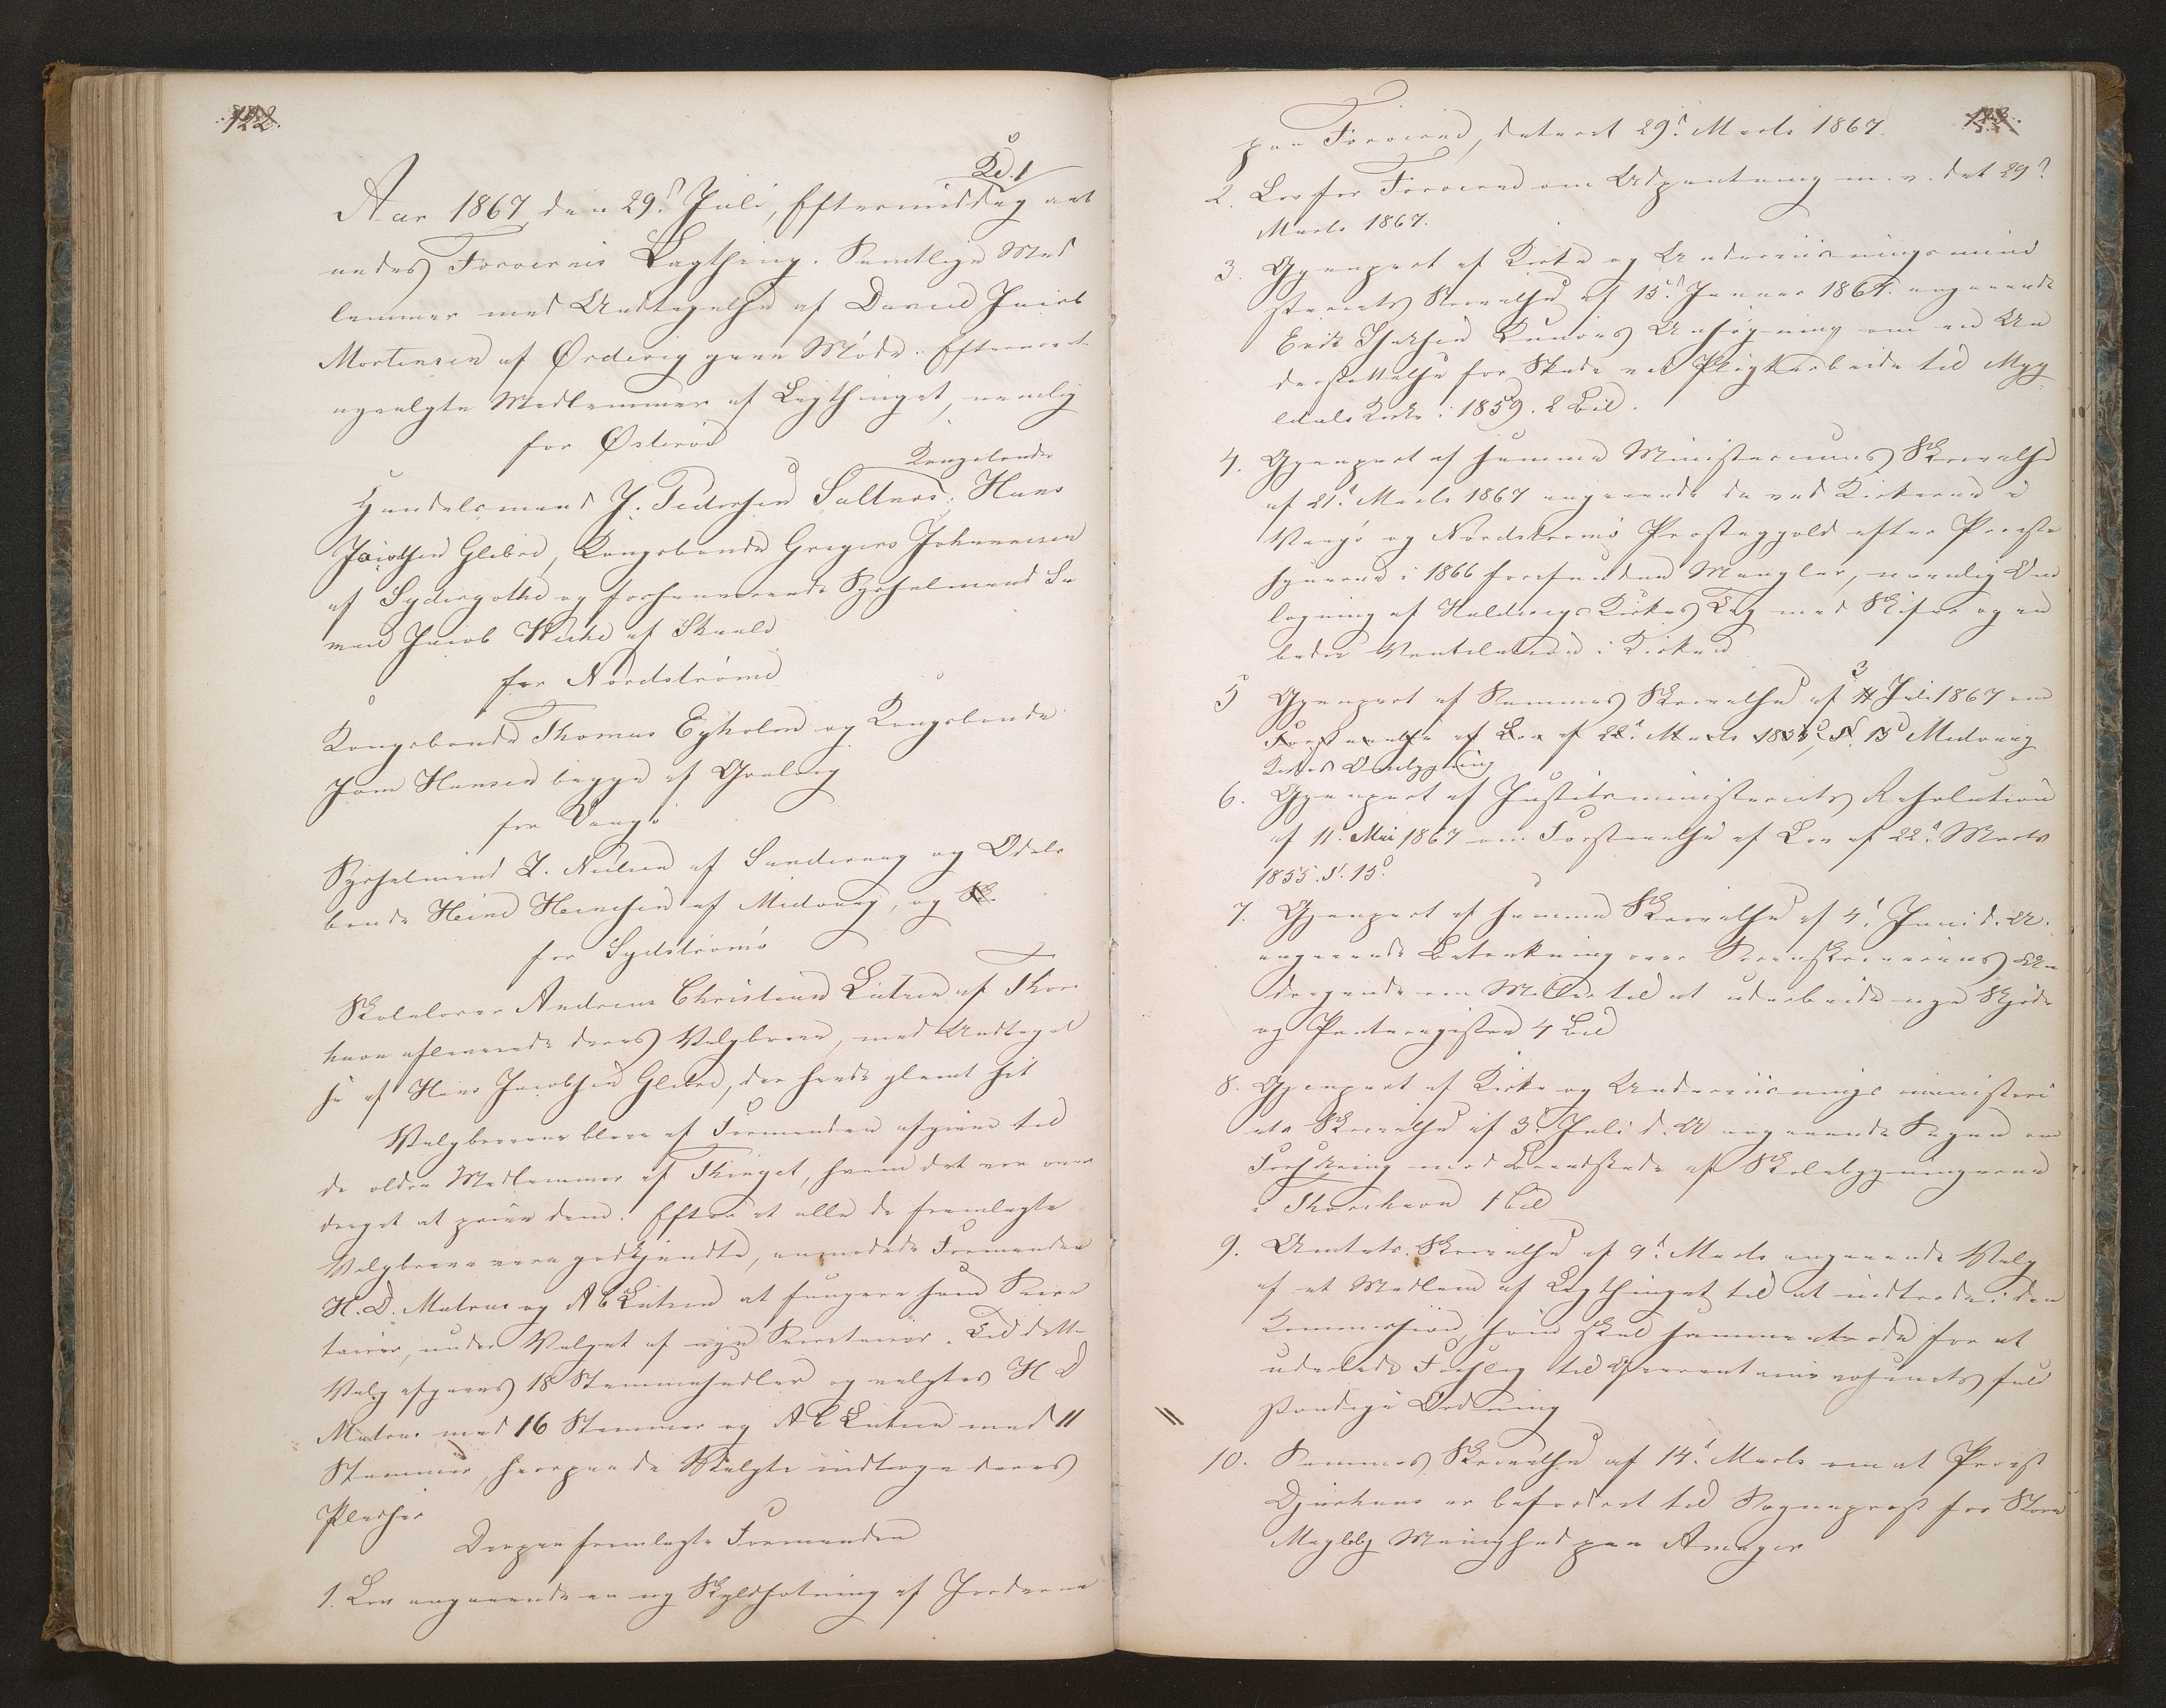 122.
Kl. 1
Aar 1867, den 29de Juli, Eftermiddag aab
nedes Færøernes Lagthing. Samtlige Med
lemmer med Undtagelse af David Jacob
Mortensen af Ørderig gave Møde. Efternævnte
nyvalgte Medlemmer af Lagthinget, nemlig
for Østerø
Kongsbonde
Handelsmand J. Pedersen Saltnæs, Hans
Jacobsen Glibre, Kongsbonde Gregers Johannesen
af Sydregøthe og forhenværende Sysselmand Si
mon Jacob Weihe af Skaale
for Nordstrømø
Kongsbonde Thomas Egholm og Kongsbonde
Joen Hansen begge af Qvalvig
for Vaagø
Sysselmand L. Nielsen af Sandevaag og Odels
bonde Heine Heinesen af Midvaag, og
for Sydstrømø
Skolelærer Andreas Christian Lützen af Thors
havn afleverede deres Valgbreve, med Undtagel
se af Hans Jacobsen Glibre, der havde glemt sit
Valgbrevene bleve af Formanden afgivne til
de ældre Medlemmer af Thinget, hvem det var over
draget at prøve dem. Efter at alle de fremlagte
Valgbreve vare godkjendte, anmodede Formanden
H. D. Matras og A C Lützen at fungere som Secre
tairer, under Valget af nye Secretairer. Til dette
Valg afgaves 18 Stemmesedler og valgtes H D
Matras med 16 Stemmer og A C Lützen med 11
Stemmer, hvorpaa de Valgte indtoge deres
Pladser
Derpaa fremlagte Formanden
1. Lov angaaende en ny Skyldsætning af Jorderne
paa Færøerne, dateret 29de Marts 1867.
2. Lov for Færøerne om Udpantning m. v. dat 29de
Marts 1867.
3. Gjenpart af Kirke og Underviisningsmini
steriets Skrivelse af 15de Januar 1867 angaaende
Erik Ansøgning om en Un
derstøttelse for Skade ved Pligtarbeide til Myg
ledals Kirke i 1859. 2 Bil.
4. Gjenpart af samme Ministeriums Skrivelse
af 21de Marts 1867 angaaende de ved Kirkerne i
Vaagø og Nordstrømø Præstegjeld efter Provste
synerne i 1866 forefundne Mangler, nemlig Om
lægning af Haldervigs Kirkes Tag med Skifer og en
bedre Ventilation i Kirken
5 Gjenpart af Sammes Skrivelse af 3 Juli 1867 om
Forstaaelse af Lov af 22de Marts 1855, §. 15 Midvaag
Kirkes Ombygning
6. Gjenpart af Justitsministeriets Resolution
af 11. Mai 1867 om Forstaaelse af Lov af 22de Marts
1855 §. 15.
7. Gjenpart af samme Skrivelse af 4de Juni d. A.
angaaende Betænkning over Sorenskriverens An
dragende om Midler til at udarbeide nye Skjøde
og Panteregistre 4 Bil
8. Gjenpart af Kirke og Underviisnings ministeri
ets Skrivelse af 3de Juli d. A angaaende Sagen om
Forsikring mod Brandskade af Skolebygningerne
i Thorshavn 1 Bil
9. Amtets Skrivelse af 9de Marts angaaende Valg
af et Medlem af Lagthinget til at indtræde i den
Kommission, som skal sammentræde for at
udarbeide Forslag til Qvarantainevæsenets fuld
stændige Ordning
10. Sammes Skrivelse af 14de Marts om at Provst
Djurhuus er befordret til Sognepræst for Store
Magleby Menighed paa Amager